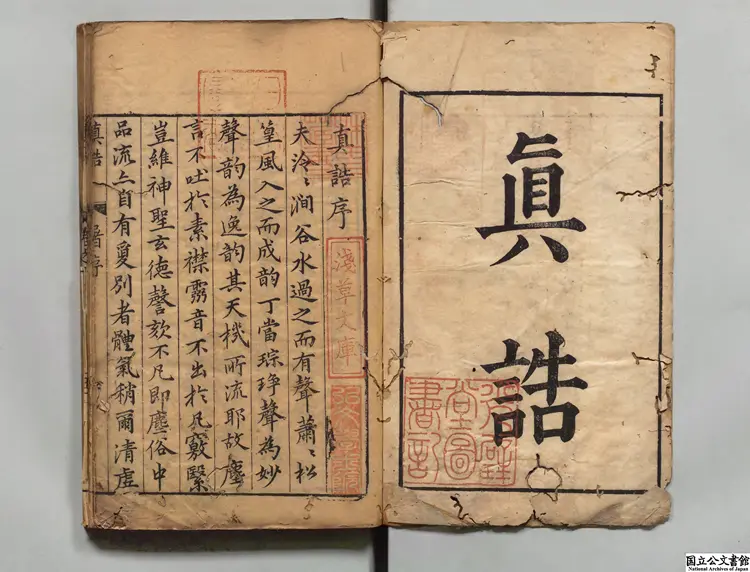 眞誥
堂圖
書記
真誥序
淺草文庫
夫泠〻澗谷水過之而有聲蕭〻松
篁風入之而成韵丁當琮琤聲為妙
聲韵為逸韵其天機所流耶故塵
言不吐於素襟霛音不出於凡竅繄
豈維神聖玄德謦欬不凡即塵俗中
品流上自有敻別者體氣稍爾清虛
真誥
序
国立公文書館
National Archives of Japan